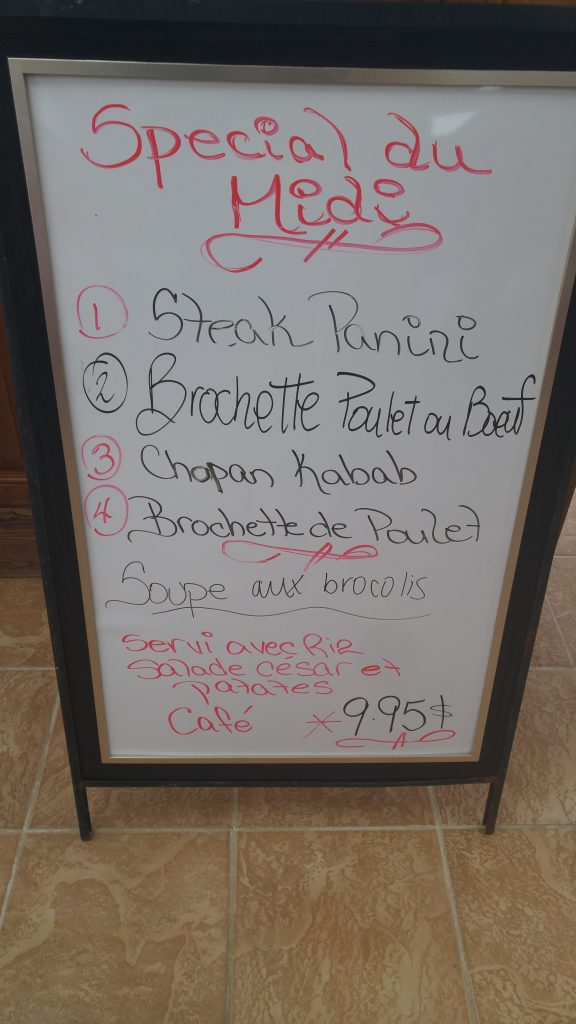 Special du
Midi
1 Steak Panini
2 Brochette Poulet ou Boeuf
3 Chopan Kabab
4 Brochette de Poulet
Soupe aux brocolis
Servi avec Riz
Salade césar et
patates
Café * 9.95$